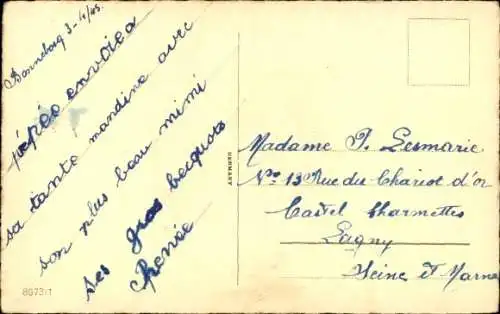 3-4/45
pépée envoiea
sa tante mandine avec
son plus beau mimi
ses gros becquots
Renée
GERMANY
Madame P. Lesmarie
No 13 Rue du Chariot d'or
Castel Charmettes
Lagny
Seine et Marne
8673/1